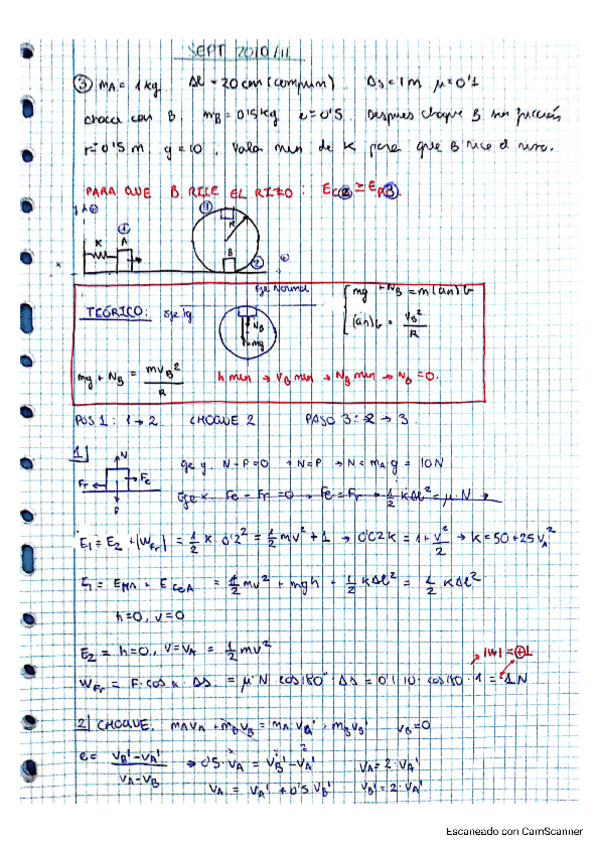 SEPT 2010/11
③ mA = 1 kg Δl = 20 cm (comprim) Δs = 1 m μ = 0'1
choca con B. mB = 0'5 kg e = 0'5. Despues choque B sin fricción
r = 0'5 m. g = 10. Valor min de K para que B rice el rizo.
PARA QUE B RICE EL RIZO: Ec② ≥ Ep③.
① ③
K A R
B ②
Eje Normal
TEÓRICO: eje tg
mg + NB = m(an)B
(an)B = vB²/R
NB
mg
mg + NB = mvB²/R h min → vB min → NB min → NB = 0.
POS 1: 1→2 CHOQUE 2 PASO 3: 2→3.
1]
N
Fr Fe
P
eje y. N - P = 0 → N = P → N = mA g = 10N
Eje x. Fe - Fr = 0 → Fe = Fr → 1/2 KΔl² = μ·N →
E1 = E2 + |WFr| = 1/2 K 0'2² = 1/2 mv² + 1 → 0'02K = 1 + v²/2 → K = 50 + 25 vA²
E1 = EMA + EceA = 1/2 mv² + mgh + 1/2 KΔl² = 1/2 KΔl²
h=0, v=0
E2 = h=0, V=VA = 1/2 mv²
|W| = ⊕1
WFr = F·cos α·Δs = μ·N cos180° Δs = 0'1·10·cos180·1 = -1N
2] CHOQUE. mAvA + mBvB = mA·vA' + mBvB' vB = 0
e = (vB' - vA')/(vA - vB) → 0'5·vA = vB' - vA' vA = 2·vA'
vA = vA' + 0'5 vB' vB' = 2·vA'
Escaneado con CamScanner